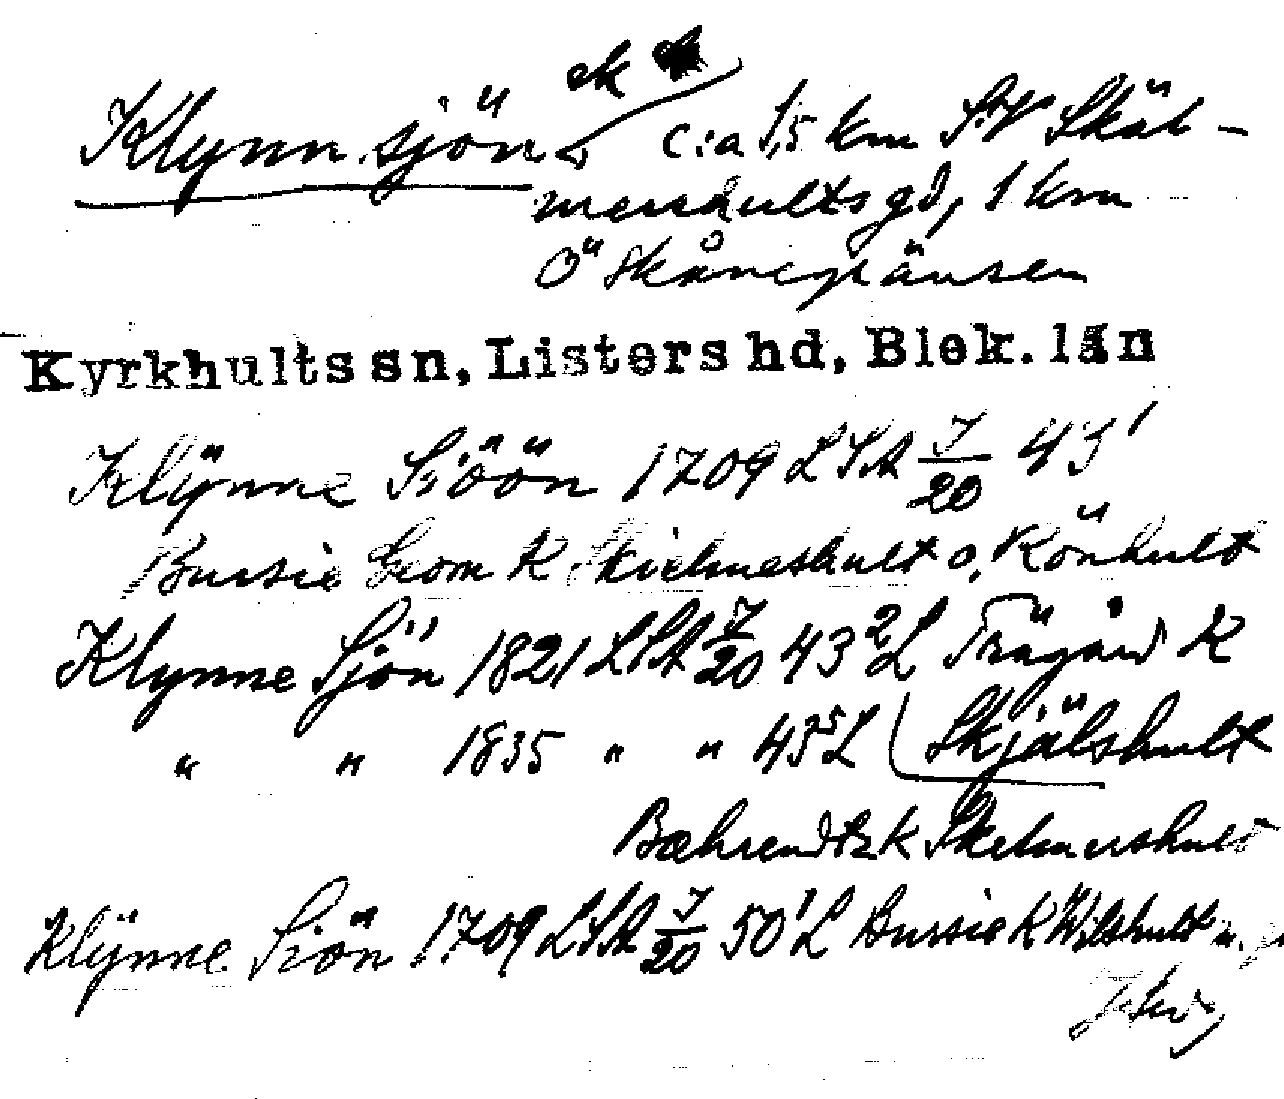 Klynnsjön ek c:a 1,5 km SV Skäl-
mershultsgd, 1 km
Ö Skånegränsen
Kyrkhults sn, Listers hd, Blek. län
Klÿnne Siöön 1709 LSA I/20 43¹
Bursie Geom K Skielmeshult o, Rönhult
Klynne Sjön 1821 LSA I/20 43²L Trägård K
" " 1835 " " 43⁵L Skjälshult
Bæhrendtz K Skelmershult
Klÿnne Siön 1709 LSA I/20 50¹L Bursie K Wilshult